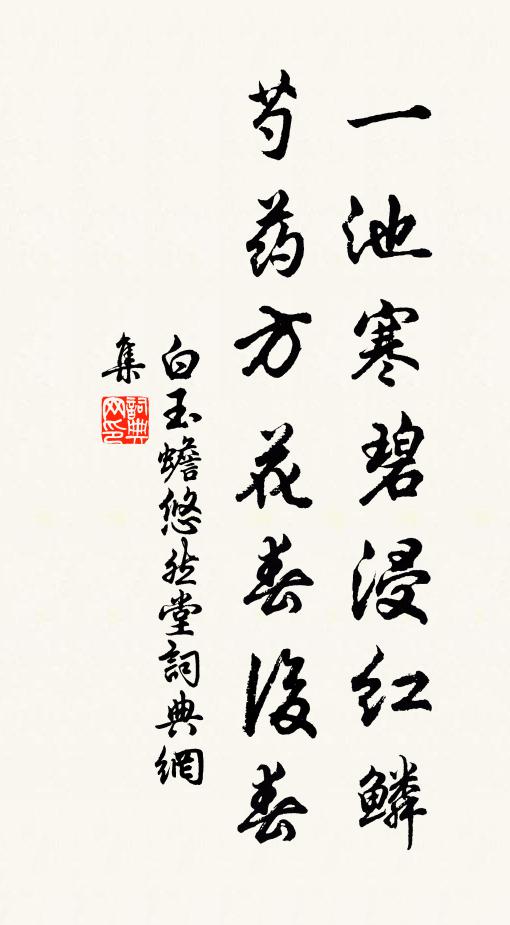 一池寒碧浸红鳞
芍药方花春後春
白玉蟾悠然堂詞典網
集
詞典网印